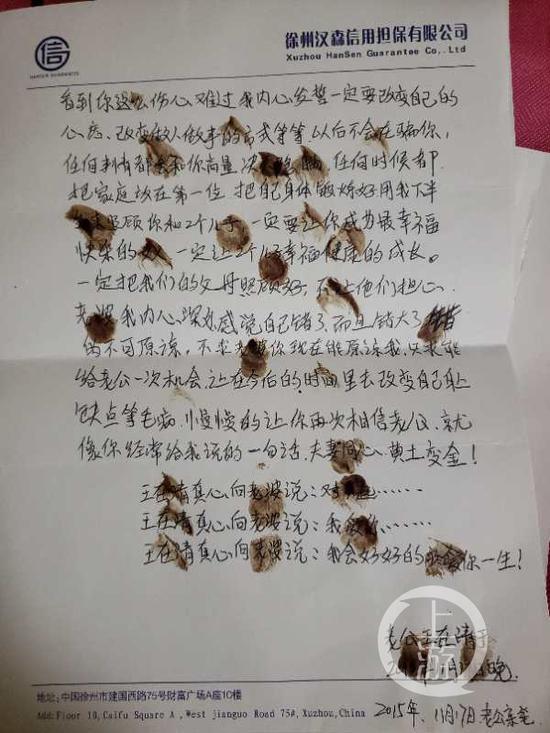 信
HANSEN GUARANTEE
徐州汉森信用担保有限公司
Xuzhou HanSen Guarantee Co,.Ltd
看到你这么伤心、难过我内心发誓一定要改变自己的
心态、改变做人做事的方式等等、以后不会在骗你、
任何事情都会和你商量 任何时候都
把家庭放在第一位 把自己身体锻炼好用我下半
照顾你和2个儿子 一定要让你成为最幸福
快乐的女人 一定让2个儿子幸福健康的成长。
一定把我们的父母照顾好、不让他们担心、
老婆我内心深处感觉自己错了而且错大了
的不可原谅、不求老婆你现在能原谅我、只求能
给老公一次机会、让在今后的时间里去改变自己身上
缺点等毛病、慢慢的让你再次相信老公、就
像你经常给我说的一句话、夫妻同心、黄土变金！
王在清真心向老婆说：对不起……
王在清真心向老婆说：我爱你……
王在清真心向老婆说：我会好好的 你一生！
老公王在清于
晚
2015年、11月17日老公亲笔
上游
地址:中国徐州市建国西路75号财富广场A座10楼
Add:Floor 10,Caifu Square A ,West jianguo Road 75#,Xuzhou,China